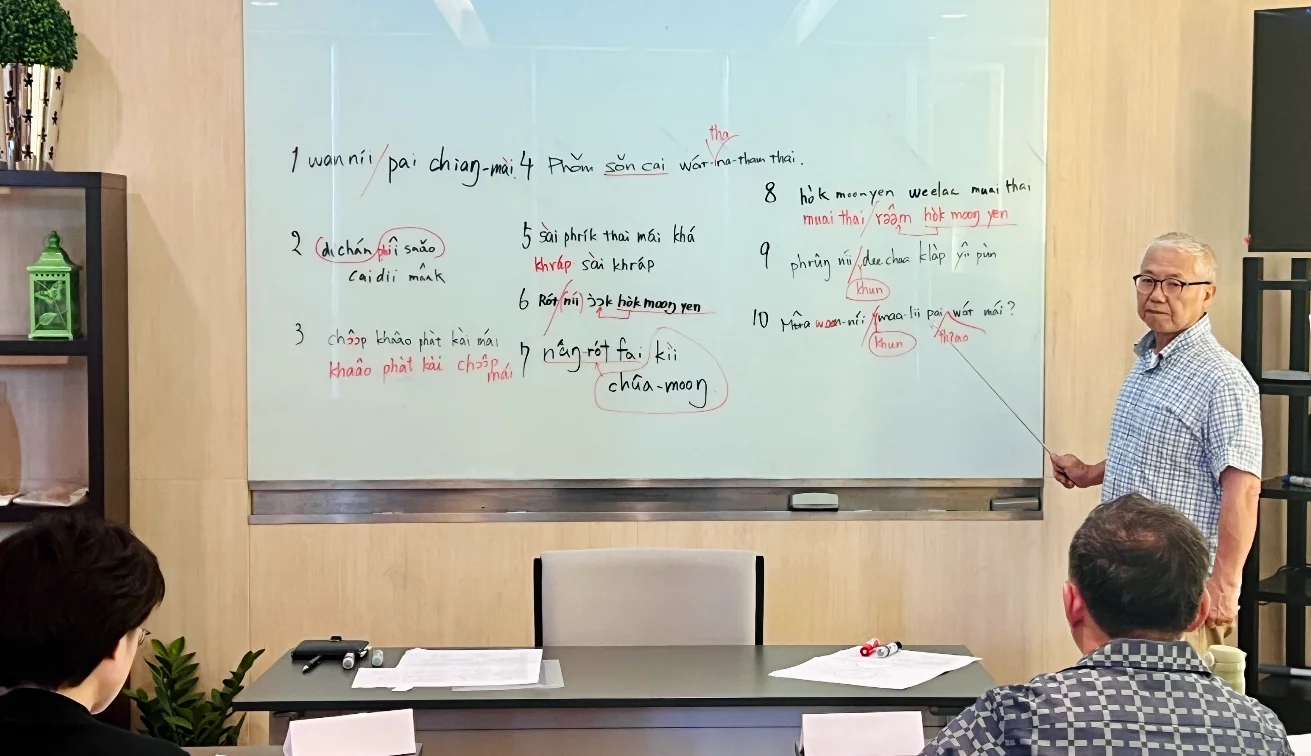 1 wan níi / pai chiang-mài.
2 dichán phîi sǎao
caidii mâak
3 chɔ̂ɔp khâao phàt kài mái
khâao phàt kài chɔ̂ɔp mái
tha
4 Phǒm sǒn cai wát-na-tham thai.
5 sài phrík thai mái khá
khráp sài khráp
6 Rót (níi) ɔ̀ɔk hòk moong yen
7 nâng-rót fai kìi
chûa-moong
8 hòk moonyen weelaa muai thai
muai thai / rə̂əm hòk moong yen
9 phrûng níi, klàp yîi pùn
khun
10 wan-níi maa-lii pai wát mái?
khun